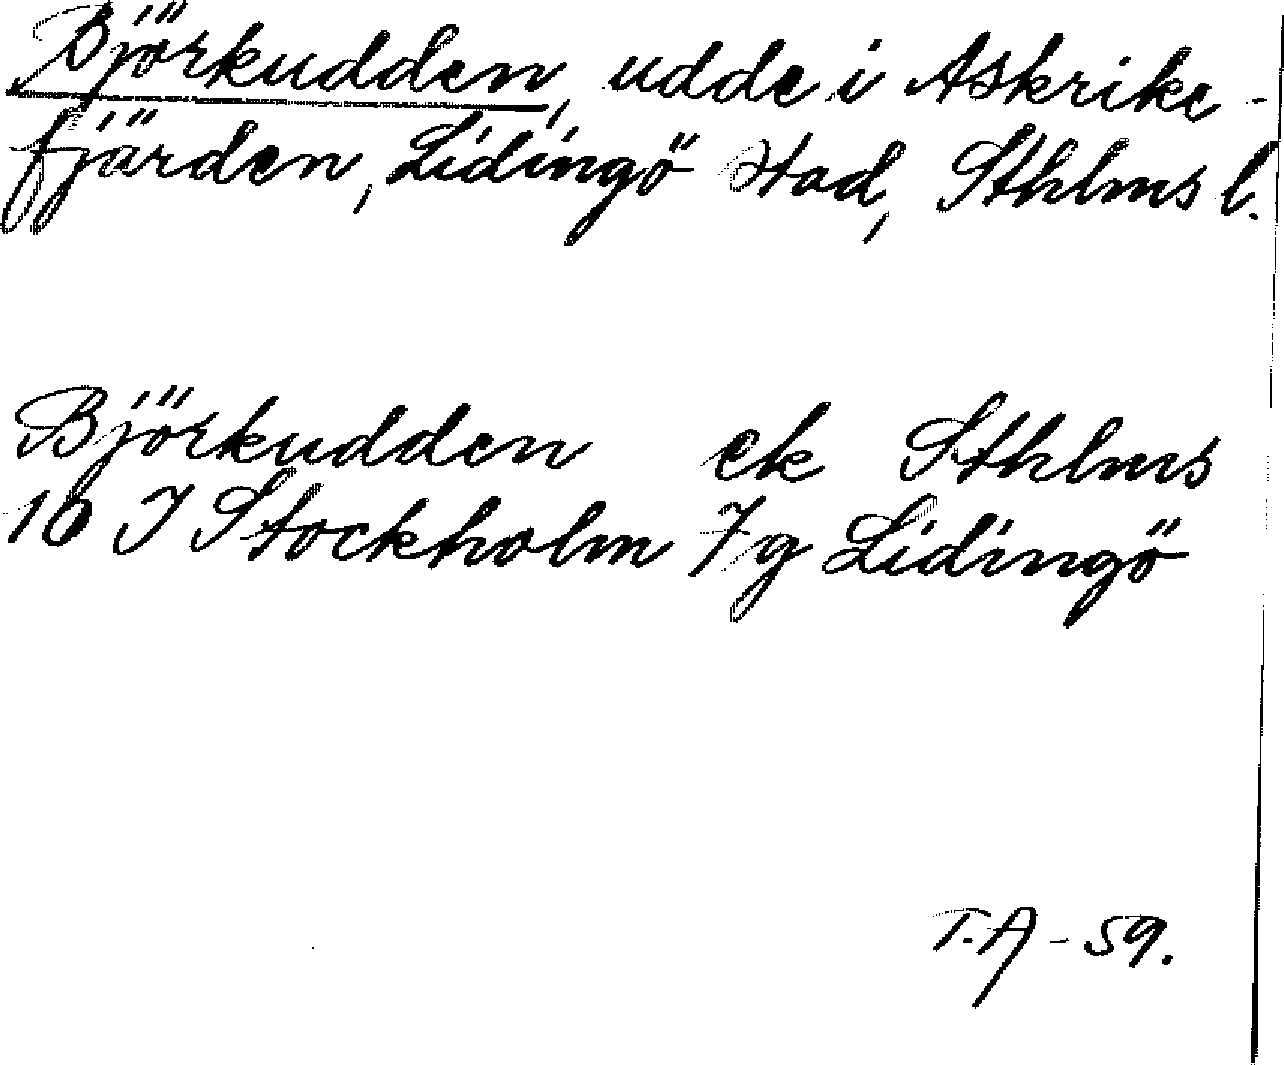 Björkudden, udde i Askrike-
fjärden, Lidingö stad, Sthlms l.
Björkudden ek Sthlms
10 I Stockholm 7g Lidingö
T.A - 59.